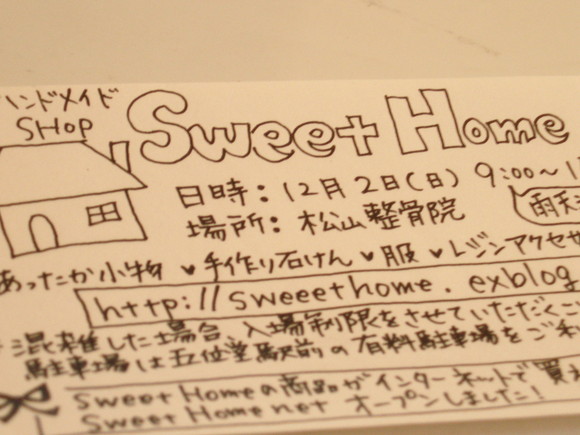 ハンドメイド
SHOP
Sweet Home
日時：12月2日（日） 9:00～1
雨天
場所：松山整骨院
あったか小物 ♥ 手作り石けん ♥ 服 ♥ レジンアクセサ
http://sweeethome.exblog
混雑した場合、入場制限をさせていただくこ
駐車場は五位堂駅前の有料駐車場をご利
Sweet Homeの商品がインターネットで買え
Sweet Home net オープンしました！